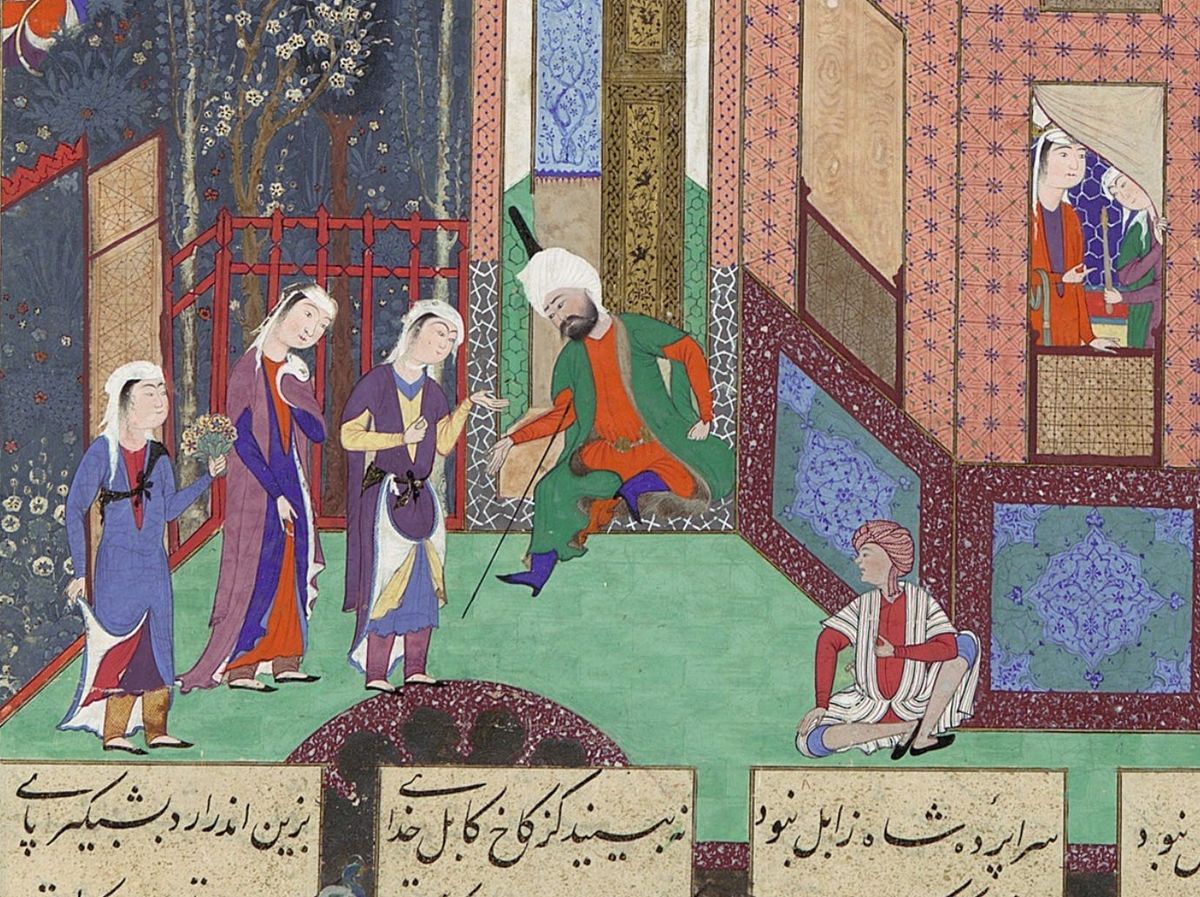 نبود
سراپرده شاه زابل نبود
نه بینید کز کاخ کابل خدای
بزین اندر آرد بشبگیر پای